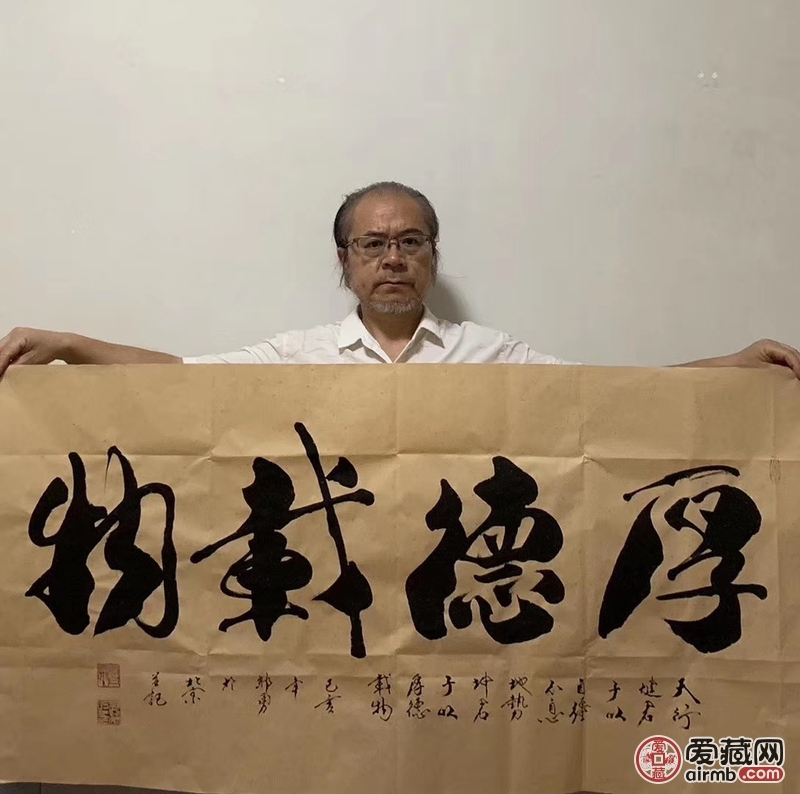 厚德載物
天行
健君
子以
自強
不息
地勢
坤君
子以
厚德
載物
己亥
年
於
爱藏网
airmb.com